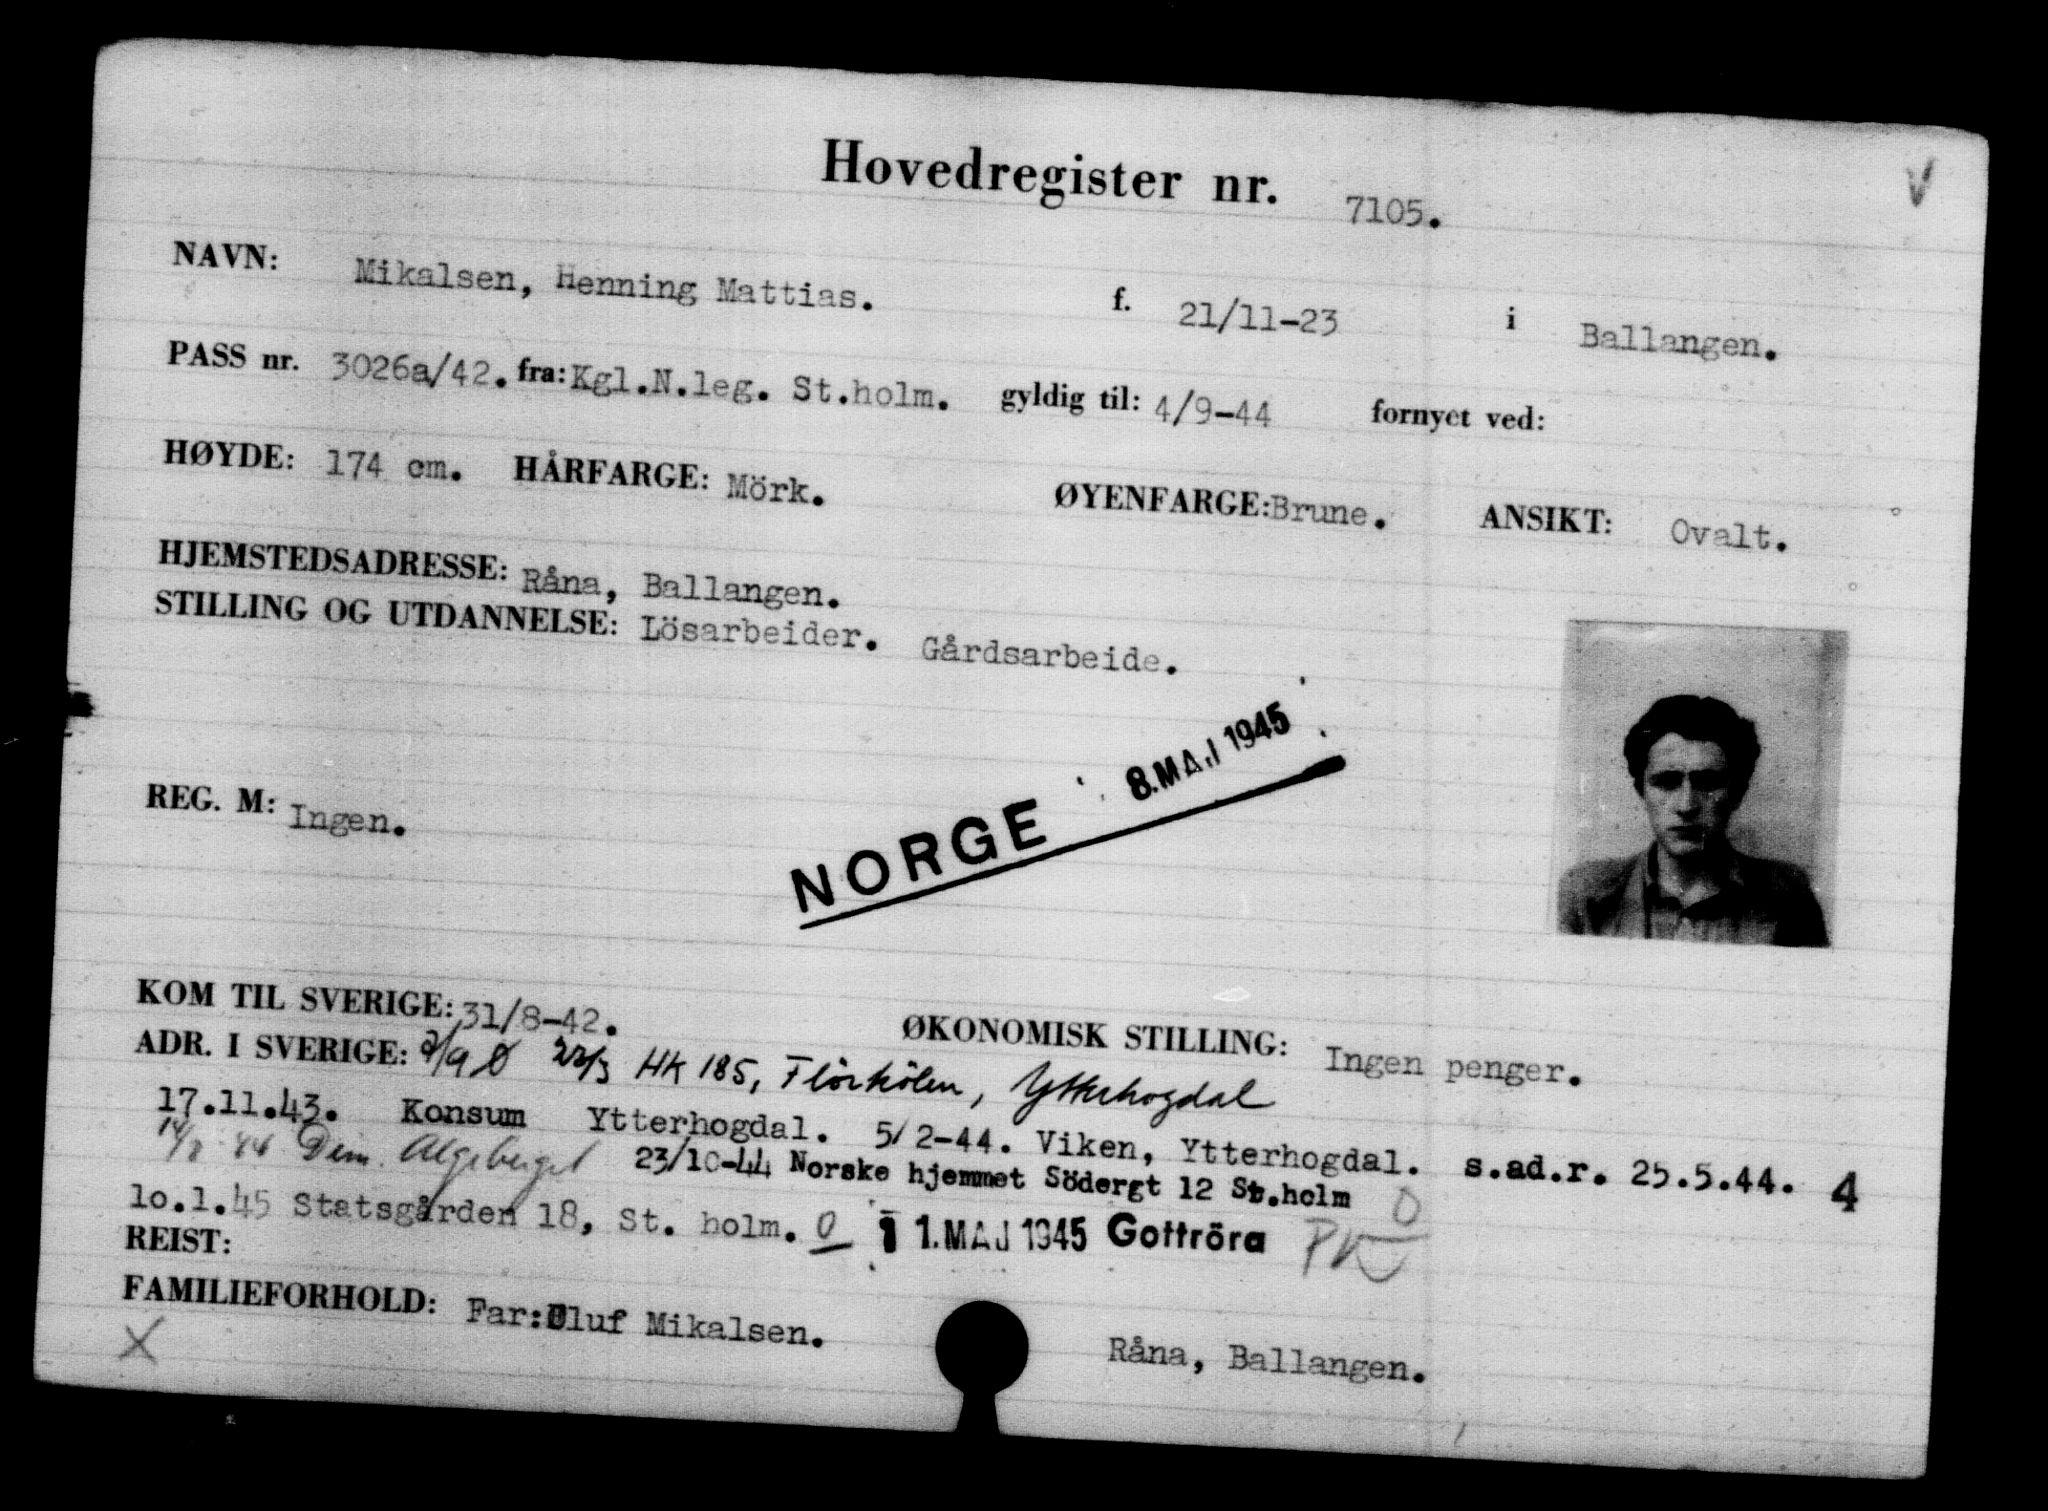 Hovedregister nr. 7105.
V
NAVN: Mikalsen, Henning Mattias. f. 21/11-23 i Ballangen.
PASS nr. 3026a/42. fra: Kgl.N.leg. St.holm. gyldig til: 4/9-44 fornyet ved:
HØYDE: 174 cm. HÅRFARGE: Mörk. ØYENFARGE: Brune. ANSIKT: Ovalt.
HJEMSTEDSADRESSE: Råna, Ballangen.
STILLING OG UTDANNELSE: Lösarbeider. Gårdsarbeide.
REG. M: Ingen.
NORGE 8. MAJ 1945
KOM TIL SVERIGE: 31/8-42. ØKONOMISK STILLING: Ingen penger.
ADR. I SVERIGE: 2/9 Ø 22/3 HK 185, Flörkölen, Ytterhogdal
17.11.43. Konsum Ytterhogdal. 5/2-44. Viken, Ytterhogdal. s.ad.r. 25.5.44. 4
Dim. Älgeberget 23/10-44 Norske hjemmet Södergt 12 St.holm 0
10.1.45 Statsgården 18, St. holm. 0 11. MAJ 1945 Gottröra
REIST:
FAMILIEFORHOLD: Far: Oluf Mikalsen. Råna, Ballangen.
X